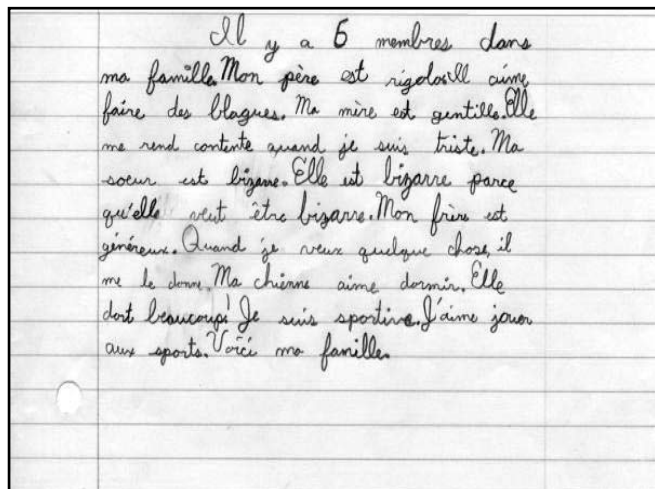 Il y a 6 membres dans
ma famille. Mon père est rigolo. Il aime
faire des blagues. Ma mère est gentille. Elle
me rend contente quand je suis triste. Ma
soeur est bizarre. Elle est bizarre parce
qu'elle veut être bizarre. Mon frère est
généreux. Quand je veux quelque chose, il
me le donne. Ma chienne aime dormir. Elle
dort beaucoup! Je suis sportive. J'aime jouer
aux sports. Voici ma famille.